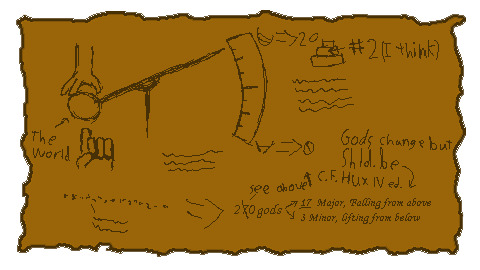 => 20
#2 (I think)
The
World
=> 0
Gods change but
Shld. be
C.F. Hux IV ed.
see above
20 gods
17 Major, Falling from above
3 Minor, lifting from below